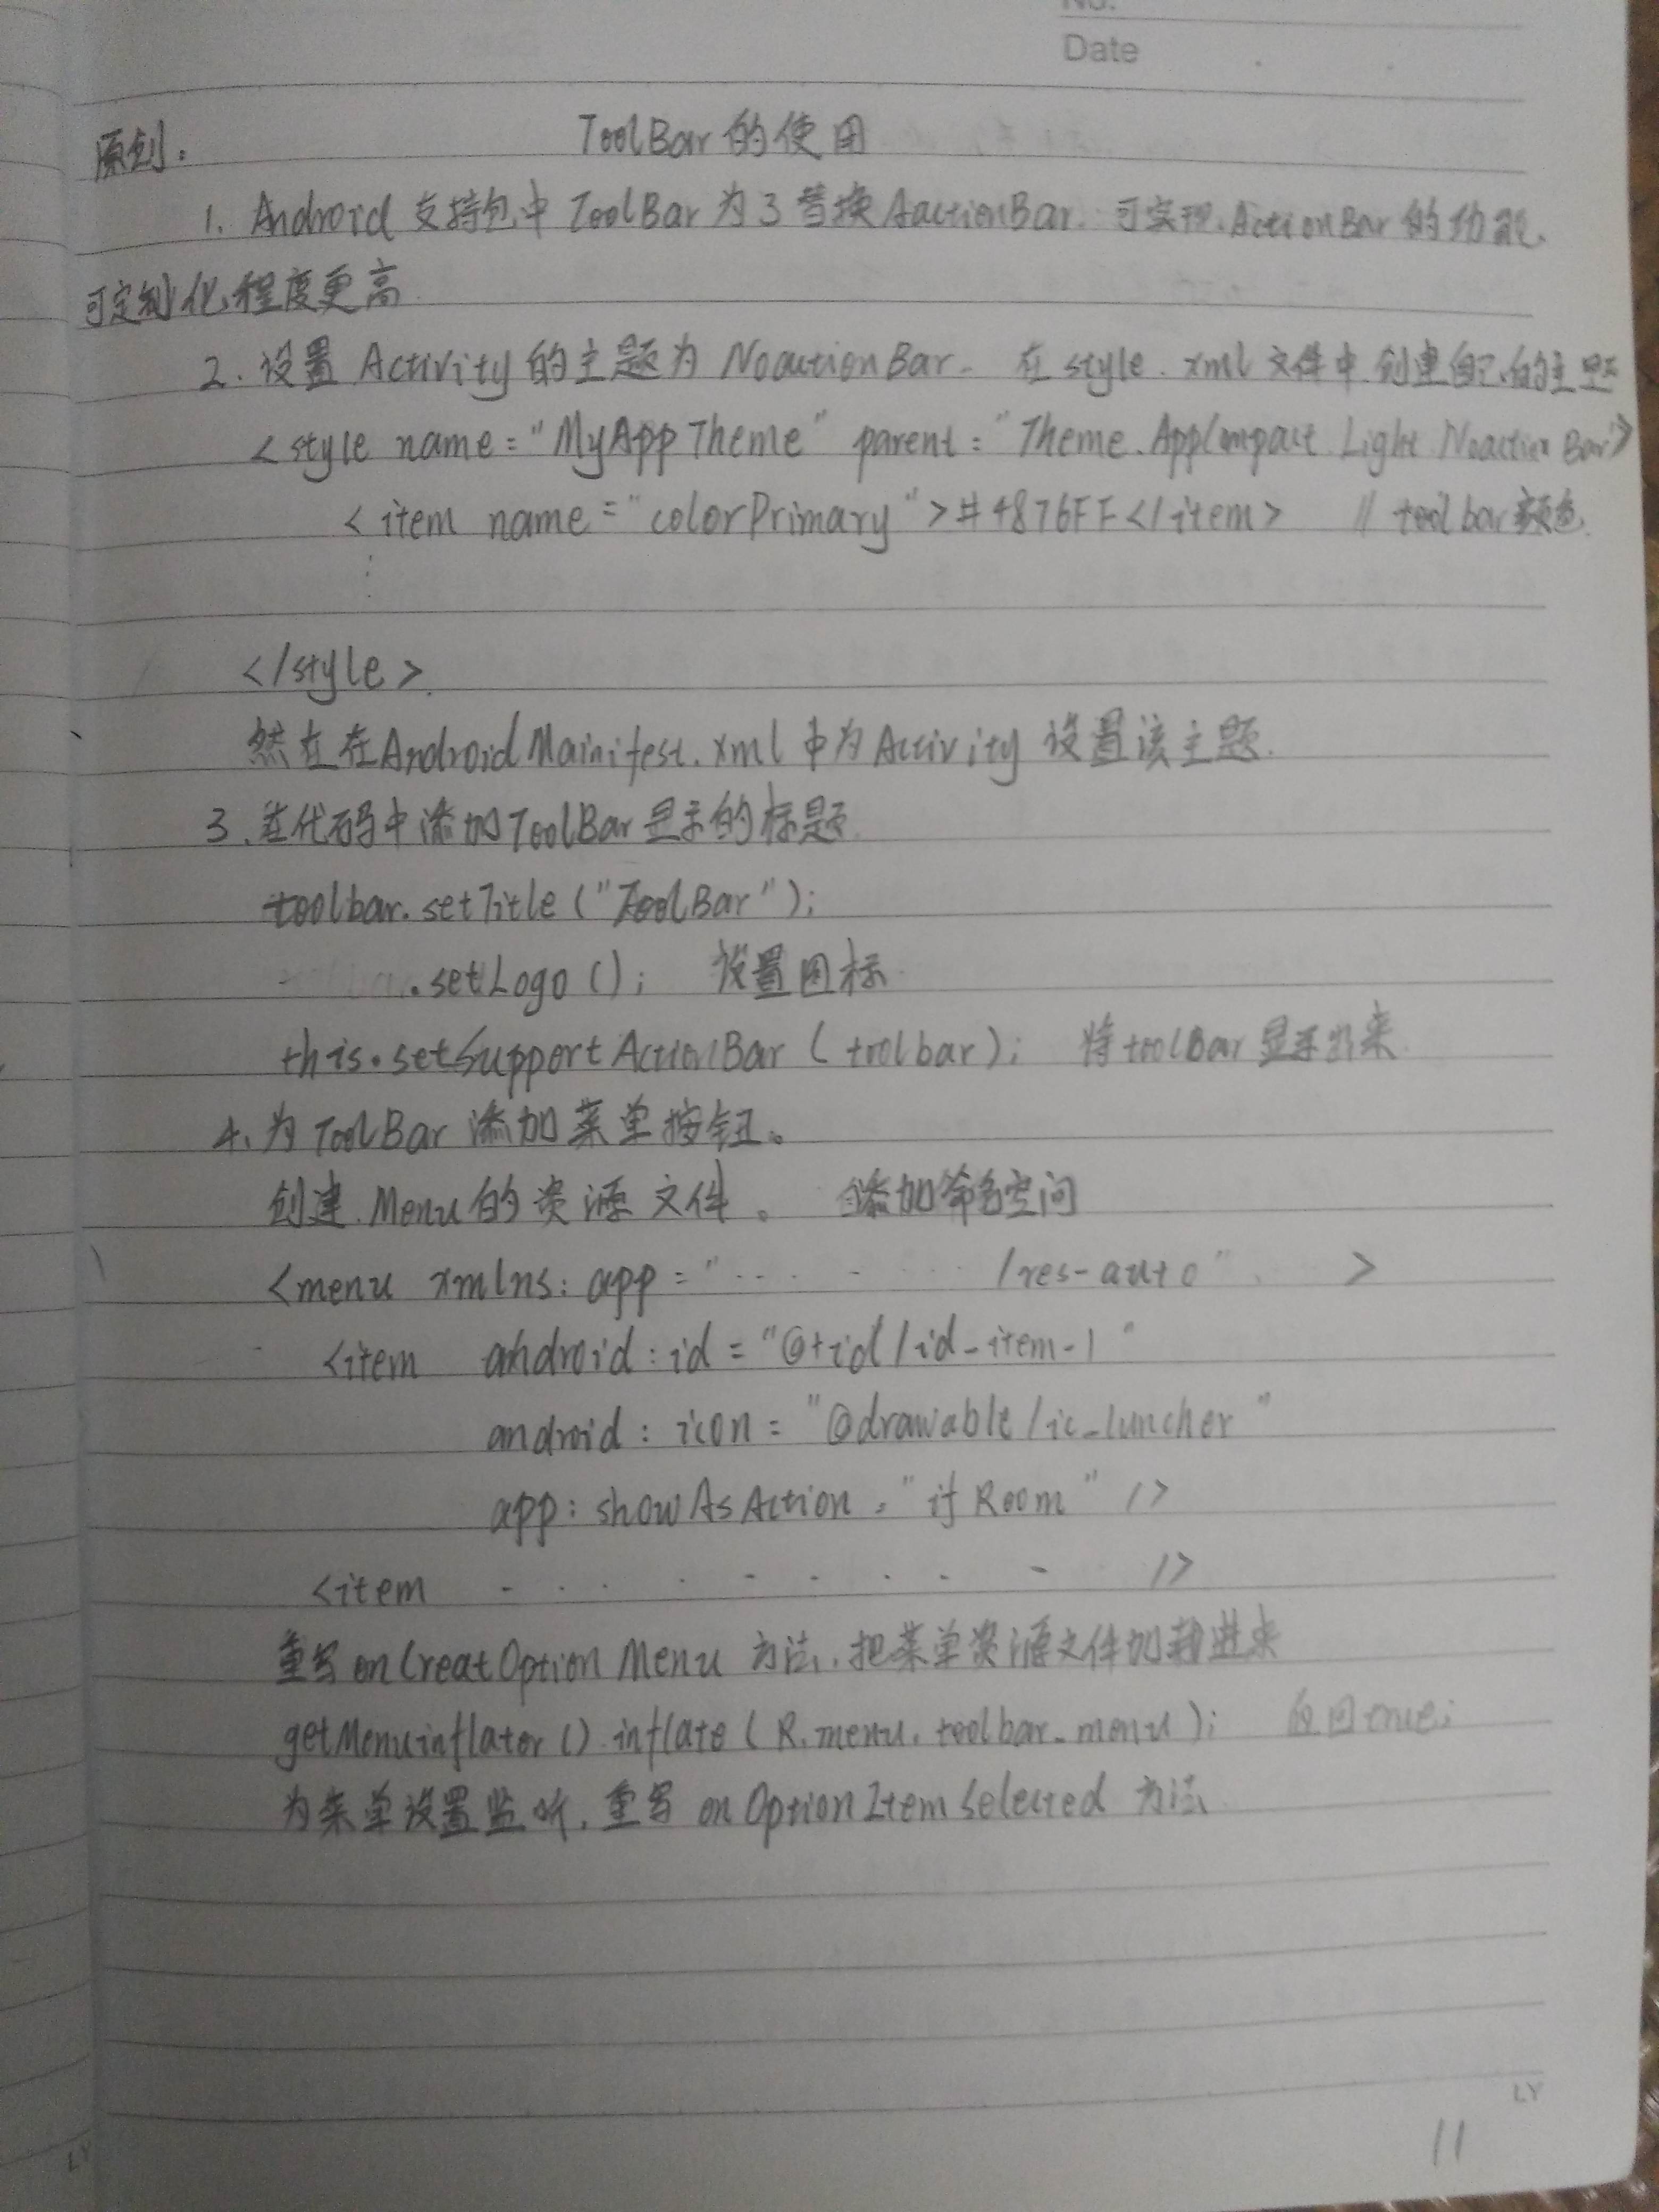 No.
Date
ToolBar 的使用
原创:
1. Android 支持包中 ToolBar 为了替换 AactionBar. 可实现 ActionBar 的功能,
可定制化程度更高
2. 设置 Activity 的主题为 NoactionBar. 在 style.xml 文件中 创建自己的主题
<style name="MyAppTheme" parent="Theme.AppCompact.Light.NoactionBar">
<item name="colorPrimary">#4876FF</item> // toolbar颜色.
</style>.
然在在AndroidMainifest.xml 中为Activity 设置该主题.
3. 在代码中添加ToolBar显示的标题.
toolbar.setTitle("ToolBar");
.setLogo(); 设置图标
this.setSupportActionBar(toolbar); 将toolBar显示出来.
4. 为 ToolBar 添加菜单按钮。
创建 Menu的资源文件。 添加命名空间
<menu xmlns:app=". . . . . /res-auto" >
<item android:id="@+id/id-item-1"
android:icon="@drawable/ic_luncher"
app:showAsAction="ifRoom" />
<item - . . . - . . . - />
重写 onCreatOptionMenu 方法, 把菜单资源文件加载进来
getMenuinflater().inflate(R.menu.toolbar_menu); 返回true;
为菜单设置监听, 重写 onOptionItemSelected 方法
LY
11
LY